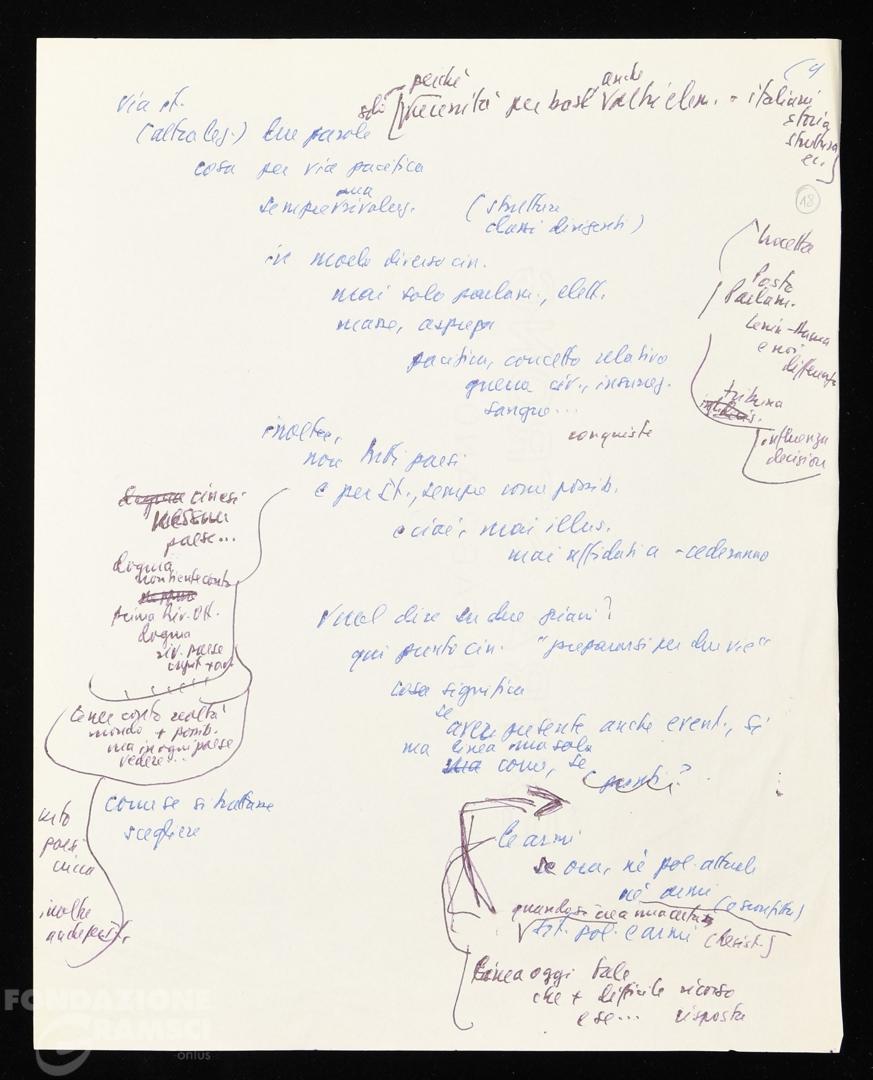 (4
perché
anche
soli [necessità per basi altri elem. - italiani
storia
struttura
ec.]
via it.
(altra leg.) due parole
18
cosa per via pacifica
ma
sempre rivoluz.
(strutture
classi dirigenti)
in modo diverso cin.
mai solo parlam., elett.
masse, asprezza
pacifica, concetto relativo
guerra civ., insurrez.
sangue...
Posto
Parlam.
Lenin
e noi
differente
tribuna
influenza
decision
conquiste
inoltre,
non tutti paesi
e per It., sempre come possib.
e cioè, mai illus.
mai affidati a - cederanno
cinesi
nessun
paese...
dogma
non tiene conto
prima riv. Ott.
dogma
riv. paese
tener conto realtà
mondo + possib.
ma in ogni paese
vedere...
Vuol dire su due piani?
qui punto cin. "prepararsi per due vie"
cosa significa
se
aver presente anche event., sì
ma linea una sola
ma come, se
come se si trattasse
scegliere
paesi
inoltre
anche per It.
Le armi
se ora, né pol. attuale
né armi (e sconfitta)
quando si crea una certa
sit. pol. e armi (Resist.)
Linea oggi tale
che + difficile ricorso
e se... risposta
FONDAZIONE
GRAMSCI
onlus